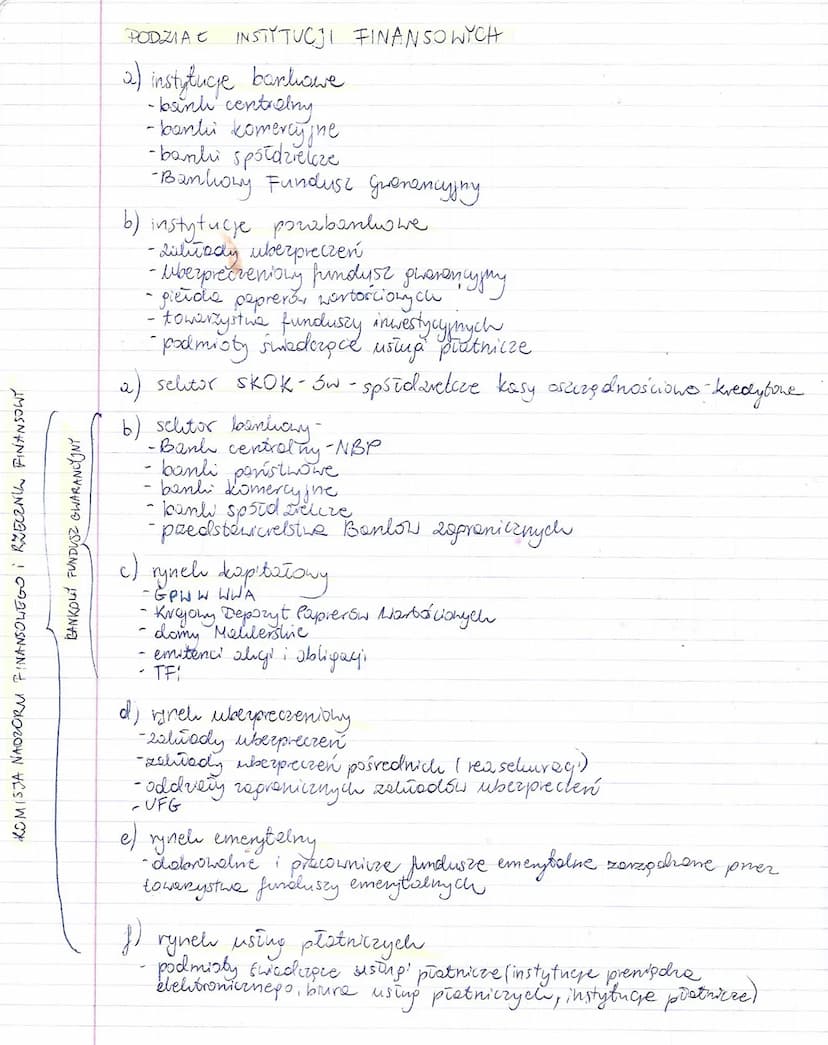 PODZIAŁ INSTYTUCJI FINANSOWYCH
a) instytucje bankowe
- bank centralny
- banki komercyjne
- banki spółdzielcze
- Bankowy Fundusz Gwarancyjny
b) instytucje pozabankowe
- zakłady ubezpieczeń
- ubezpieczeniowy fundusz gwarancyjny
- giełda papierów wartościowych
- towarzystwa funduszy inwestycyjnych
- podmioty świadczące usługi płatnicze
a) sektor SKOK-ów - spółdzielcze kasy oszczędnościowo-kredytowe
b) sektor bankowy -
- Bank centralny - NBP
- banki państwowe
- banki komercyjne
- banki spółdzielcze
- przedstawicielstwa Banków zagranicznych
c) rynek kapitałowy
- GPW W WWA
- Krajowy Depozyt Papierów Wartościowych
- domy Maklerskie
- emitenci akcji i obligacji
- TFI
d) rynek ubezpieczeniowy
- zakłady ubezpieczeń
- zakłady ubezpieczeń pośrednich (reasekuracji)
- oddziały zagranicznych zakładów ubezpieczeń
- UFG
e) rynek emerytalny
- dobrowolne i pracownicze fundusze emerytalne zarządzane przez
towarzystwa funduszy emerytalnych
f) rynek usług płatniczych
- podmioty świadczące usługi płatnicze (instytucje pieniądza
elektronicznego, biura usług płatniczych, instytucje płatnicze)
BANKOWY FUNDUSZ GWARANCYJNY
KOMISJA NADZORU FINANSOWEGO i RZECZNIK FINANSOWY